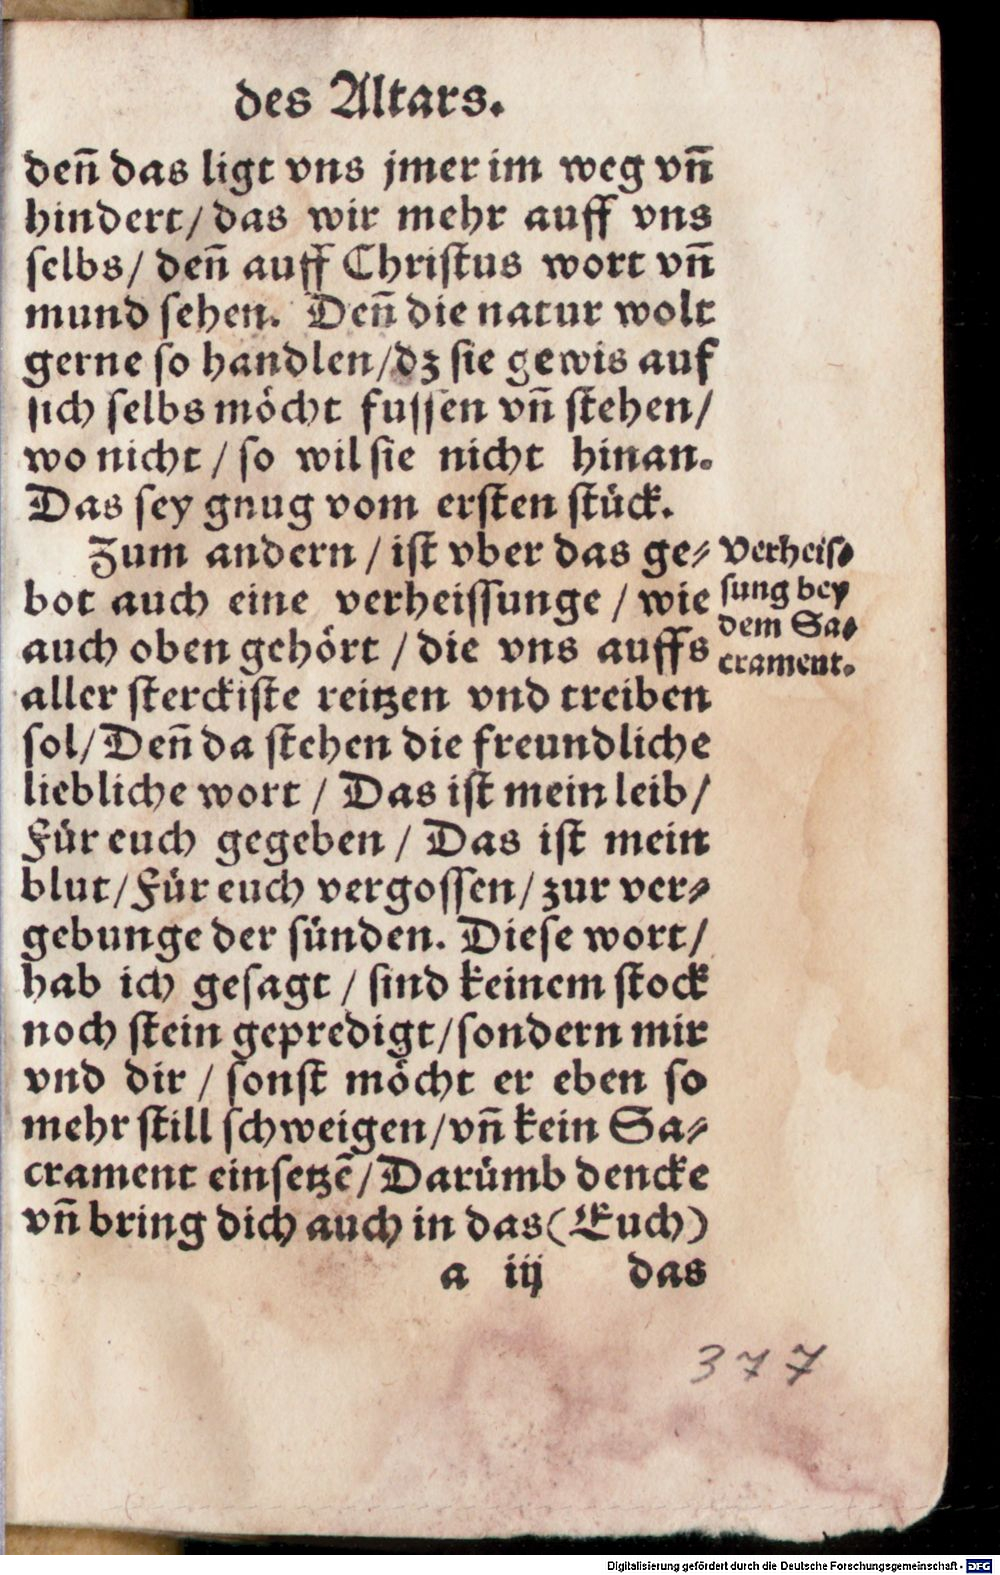 des Altars.
deñ das ligt vns jmer im weg vñ
hindert/ das wir mehr auff vns
selbs/ deñ auff Christus wort vñ
mund sehen. Deñ die natur wolt
gerne so handlen/dz sie gewis auf
sich selbs möcht fussen vñ stehen/
wo nicht / so wil sie nicht hinan.
Das sey gnug vom ersten stück.
Zum andern / ist vber das ge⸗
bot auch eine verheissunge / wie
auch oben gehört / die vns auffs
aller sterckiste reitzen vnd treiben
sol/ Deñ da stehen die freundliche
liebliche wort / Das ist mein leib/
Für euch gegeben / Das ist mein
blut/ Für euch vergossen/ zur ver⸗
gebunge der sünden. Diese wort/
hab ich gesagt / sind keinem stock
noch stein gepredigt/ sondern mir
vnd dir / sonst möcht er eben so
mehr still schweigen/ vñ kein Sa⸗
crament einsetzē/ Darümb dencke
vñ bring dich auch in das (Euch)
a iij das
Verheis⸗
sung bey
dem Sa⸗
crament.
377
Digitalisierung gefördert durch die Deutsche Forschungsgemeinschaft - DFG